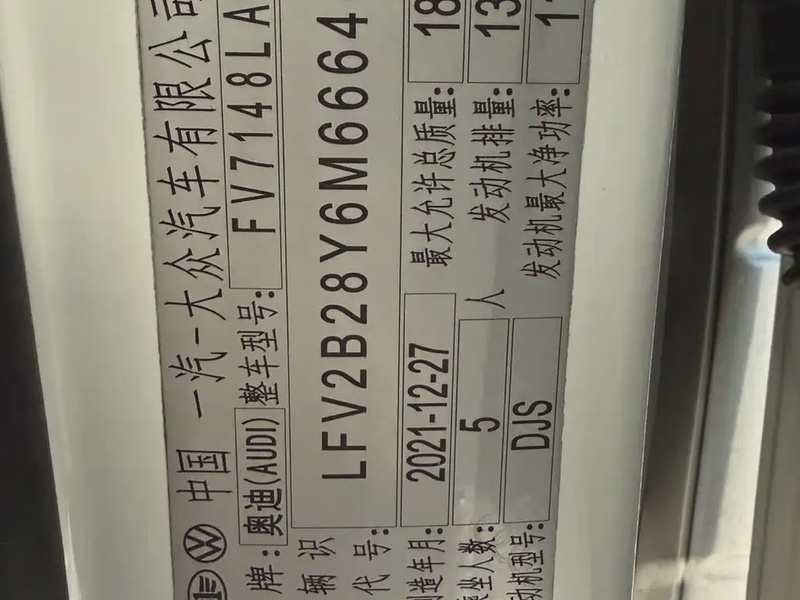 中国 一汽-大众汽车有限公司
牌：奥迪(AUDI) 整车型号：FV7148LA
辆识代号：LFV2B28Y6M6664
制造年月：2021-12-27 最大允许总质量：18
乘坐人数：5 人 发动机排量：13
发动机型号：DJS 发动机最大净功率：1